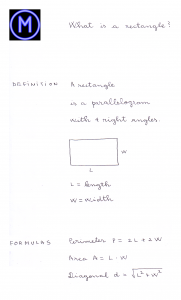 M
What is a rectangle?
DEFINITION A rectangle
is a parallelogram
with 4 right angles.
W
L
L = length
W = width
FORMULAS Perimeter P = 2L + 2W
Area A = L · W
Diagonal d = √L² + W²